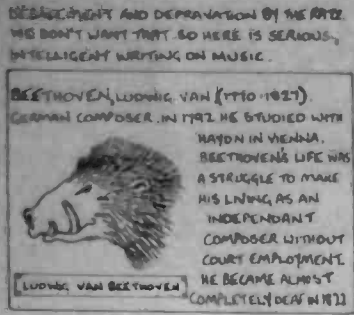 DEBASEMENT AND DEPRAVATION BY THE RATZ.
WE DON'T WANT THAT. SO HERE IS SERIOUS,
INTELLIGENT WRITING ON MUSIC.
BEETHOVEN, LUDWIG VAN (1770-1827).
GERMAN COMPOSER. IN 1792 HE STUDIED WITH
HAYDN IN VIENNA.
BEETHOVEN'S LIFE WAS
A STRUGGLE TO MAKE
HIS LIVING AS AN
INDEPENDANT
COMPOSER WITHOUT
COURT EMPLOYMENT.
HE BECAME ALMOST
COMPLETELY DEAF IN 1822
LUDWIG VAN BEETHOVEN